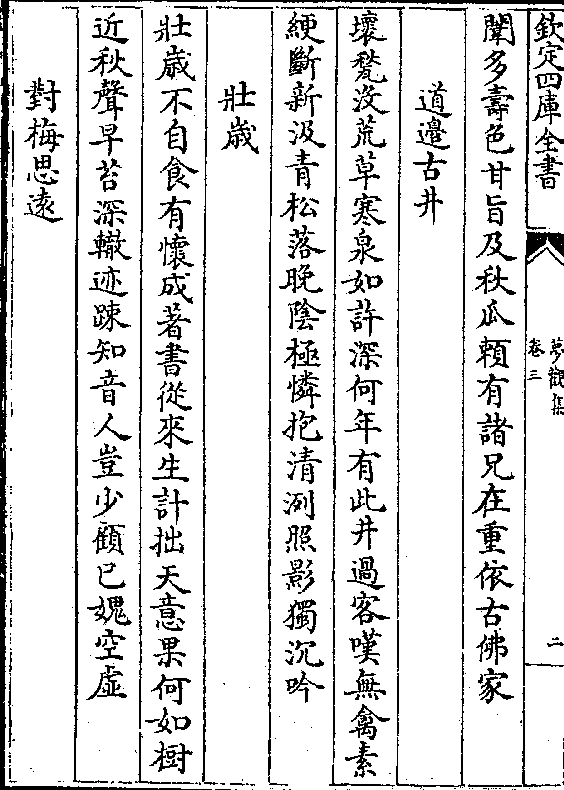 欽定四庫全書
夢觀集
卷三
二
聞多壽色甘旨及秋瓜頼有諸兄在重依古佛家
道邉古井
壊甃没荒草寒泉如許深何年有此井過客嘆無禽素
綆斷新汲青松落晚陰極憐抱清洌照影獨沉吟
壯歳
壯歳不自食有懷成著書從來生計拙天意果何如樹
近秋聲早苔深轍迹踈知音人豈少顧已媿空虛
對梅思逺